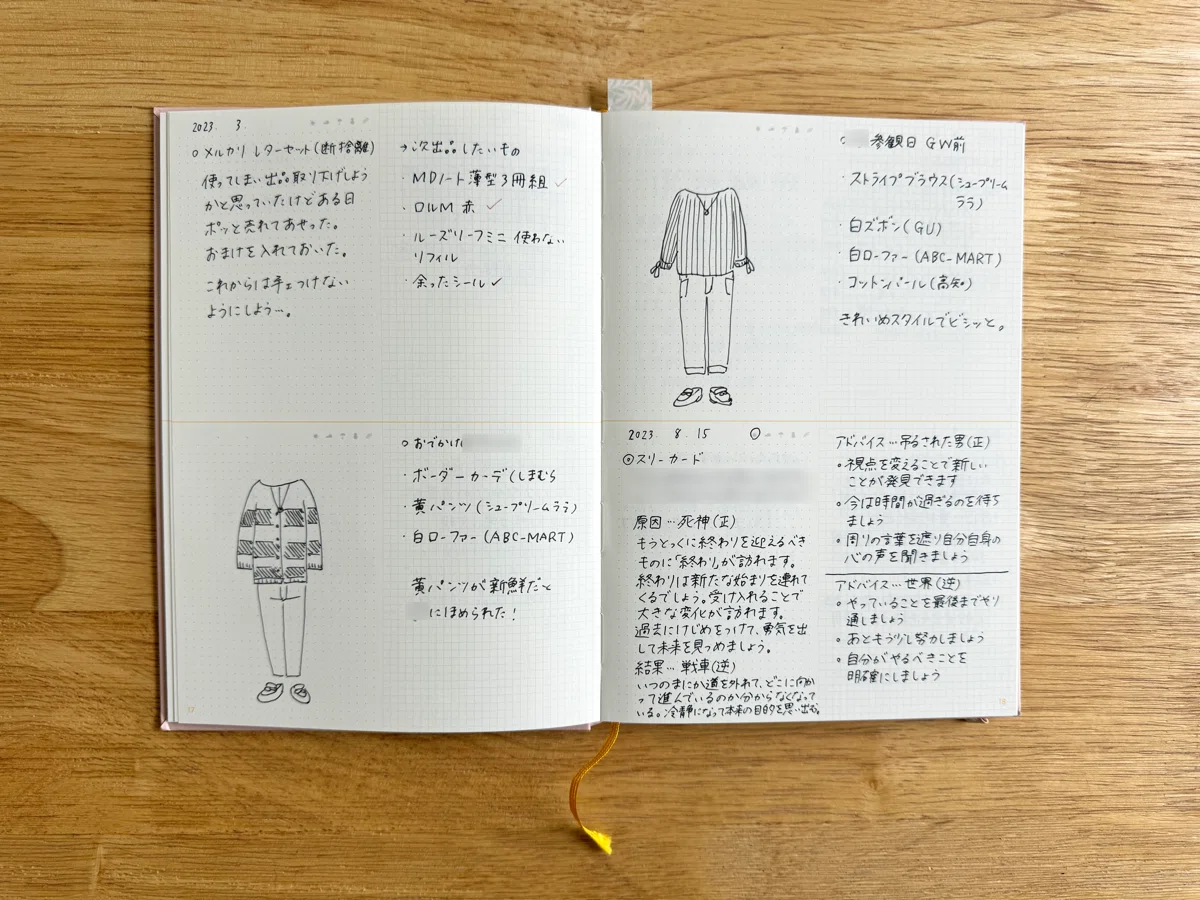 2023. 3.
○メルカリ レターセット(断捨離)
使ってしまい出品取り下げしよう
かと思っていたけどある日
ポッと売れてあせった。
おまけを入れておいた。
これからは手をつけない
ようにしよう…。
→次出品したいもの
・MDノート薄型3冊組 ✓
・ロルM 赤 ✓
・ルーズリーフミニ 使わない
リフィル
・余ったシール ✓
○おでかけ
・ボーダーカーデ(しまむら
・黄パンツ(シュープリームララ)
・白ローファー(ABC-MART)
黄パンツが新鮮だと
にほめられた!
17
○ 参観日 GW前
・ストライプブラウス(シュープリーム
ララ)
・白ズボン(GU)
・白ローファー(ABC-MART)
・コットンパール(高知)
きれいめスタイルでビシッと。
2023. 8. 15
◎スリーカード
原因…死神(正)
もうとっくに終わりを迎えるべき
ものに「終わり」が訪れます。
終わりは新たな始まりを連れて
くるでしょう。受け入れることで
大きな変化が訪れます。
過去にけじめをつけて、勇気を出
して未来を見つめましょう。
結果…戦車(逆)
いつのまにか道を外れて、どこに向か
って進んでいるのか分からなくなって
いる。冷静になって本来の目的を思い出す。
アドバイス…吊るされた男(正)
○視点を変えることで新しい
ことが発見できます
○今は時間が過ぎるのを待ち
ましょう
○周りの言葉を遮り自分自身の
心の声を聞きましょう
アドバイス…世界(逆)
○やっていることを最後までやり
通しましょう
○あともう少し努力しましょう
○自分がやるべきことを
明確にしましょう
18